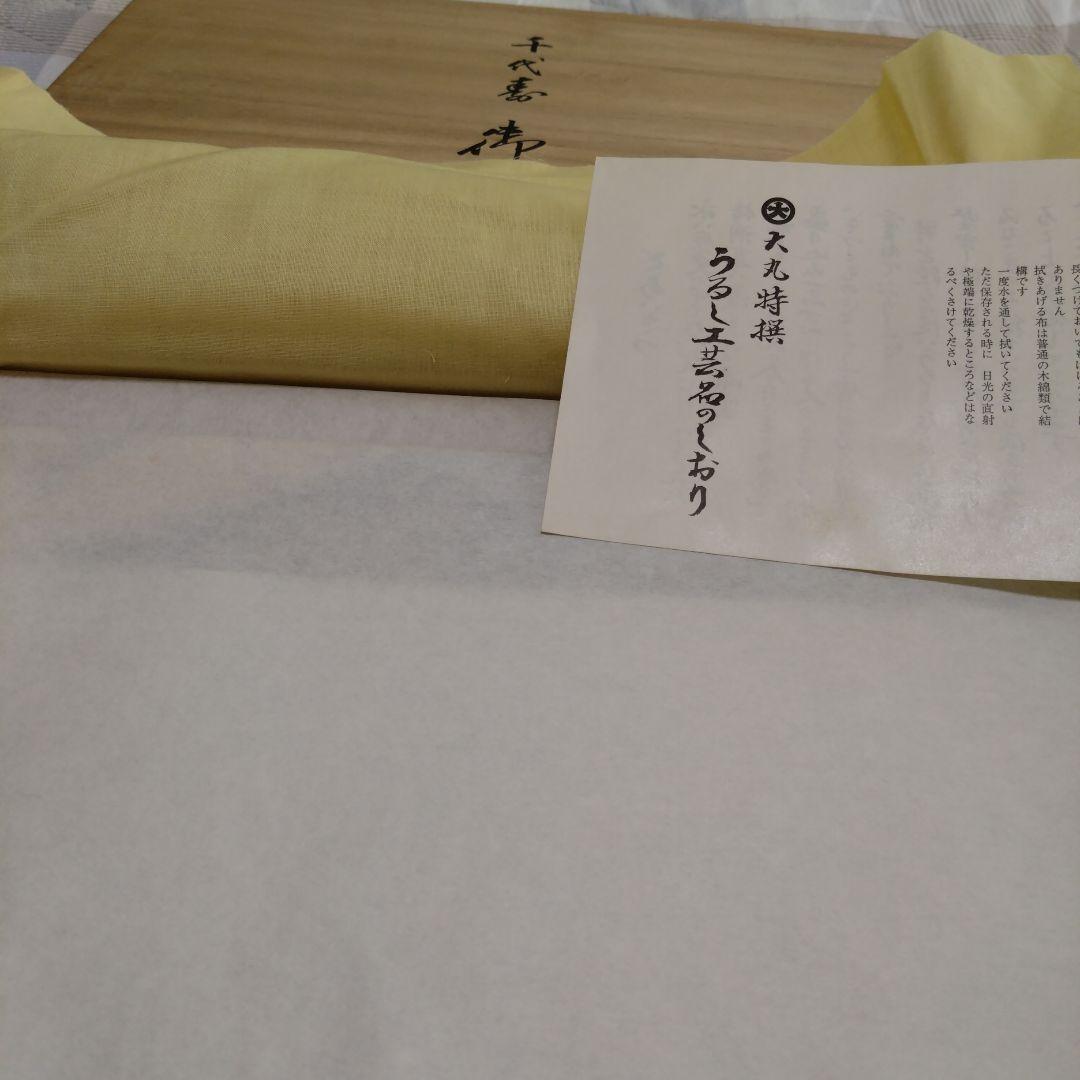 千代寿
御
大
大丸特撰
うるし工芸品のしおり
ありません
拭きあげる布は普通の木綿類で結
構です
一度水を通して拭いてください
ただ保存される時に 日光の直射
や極端に乾燥するところなどはな
るべくさけてください